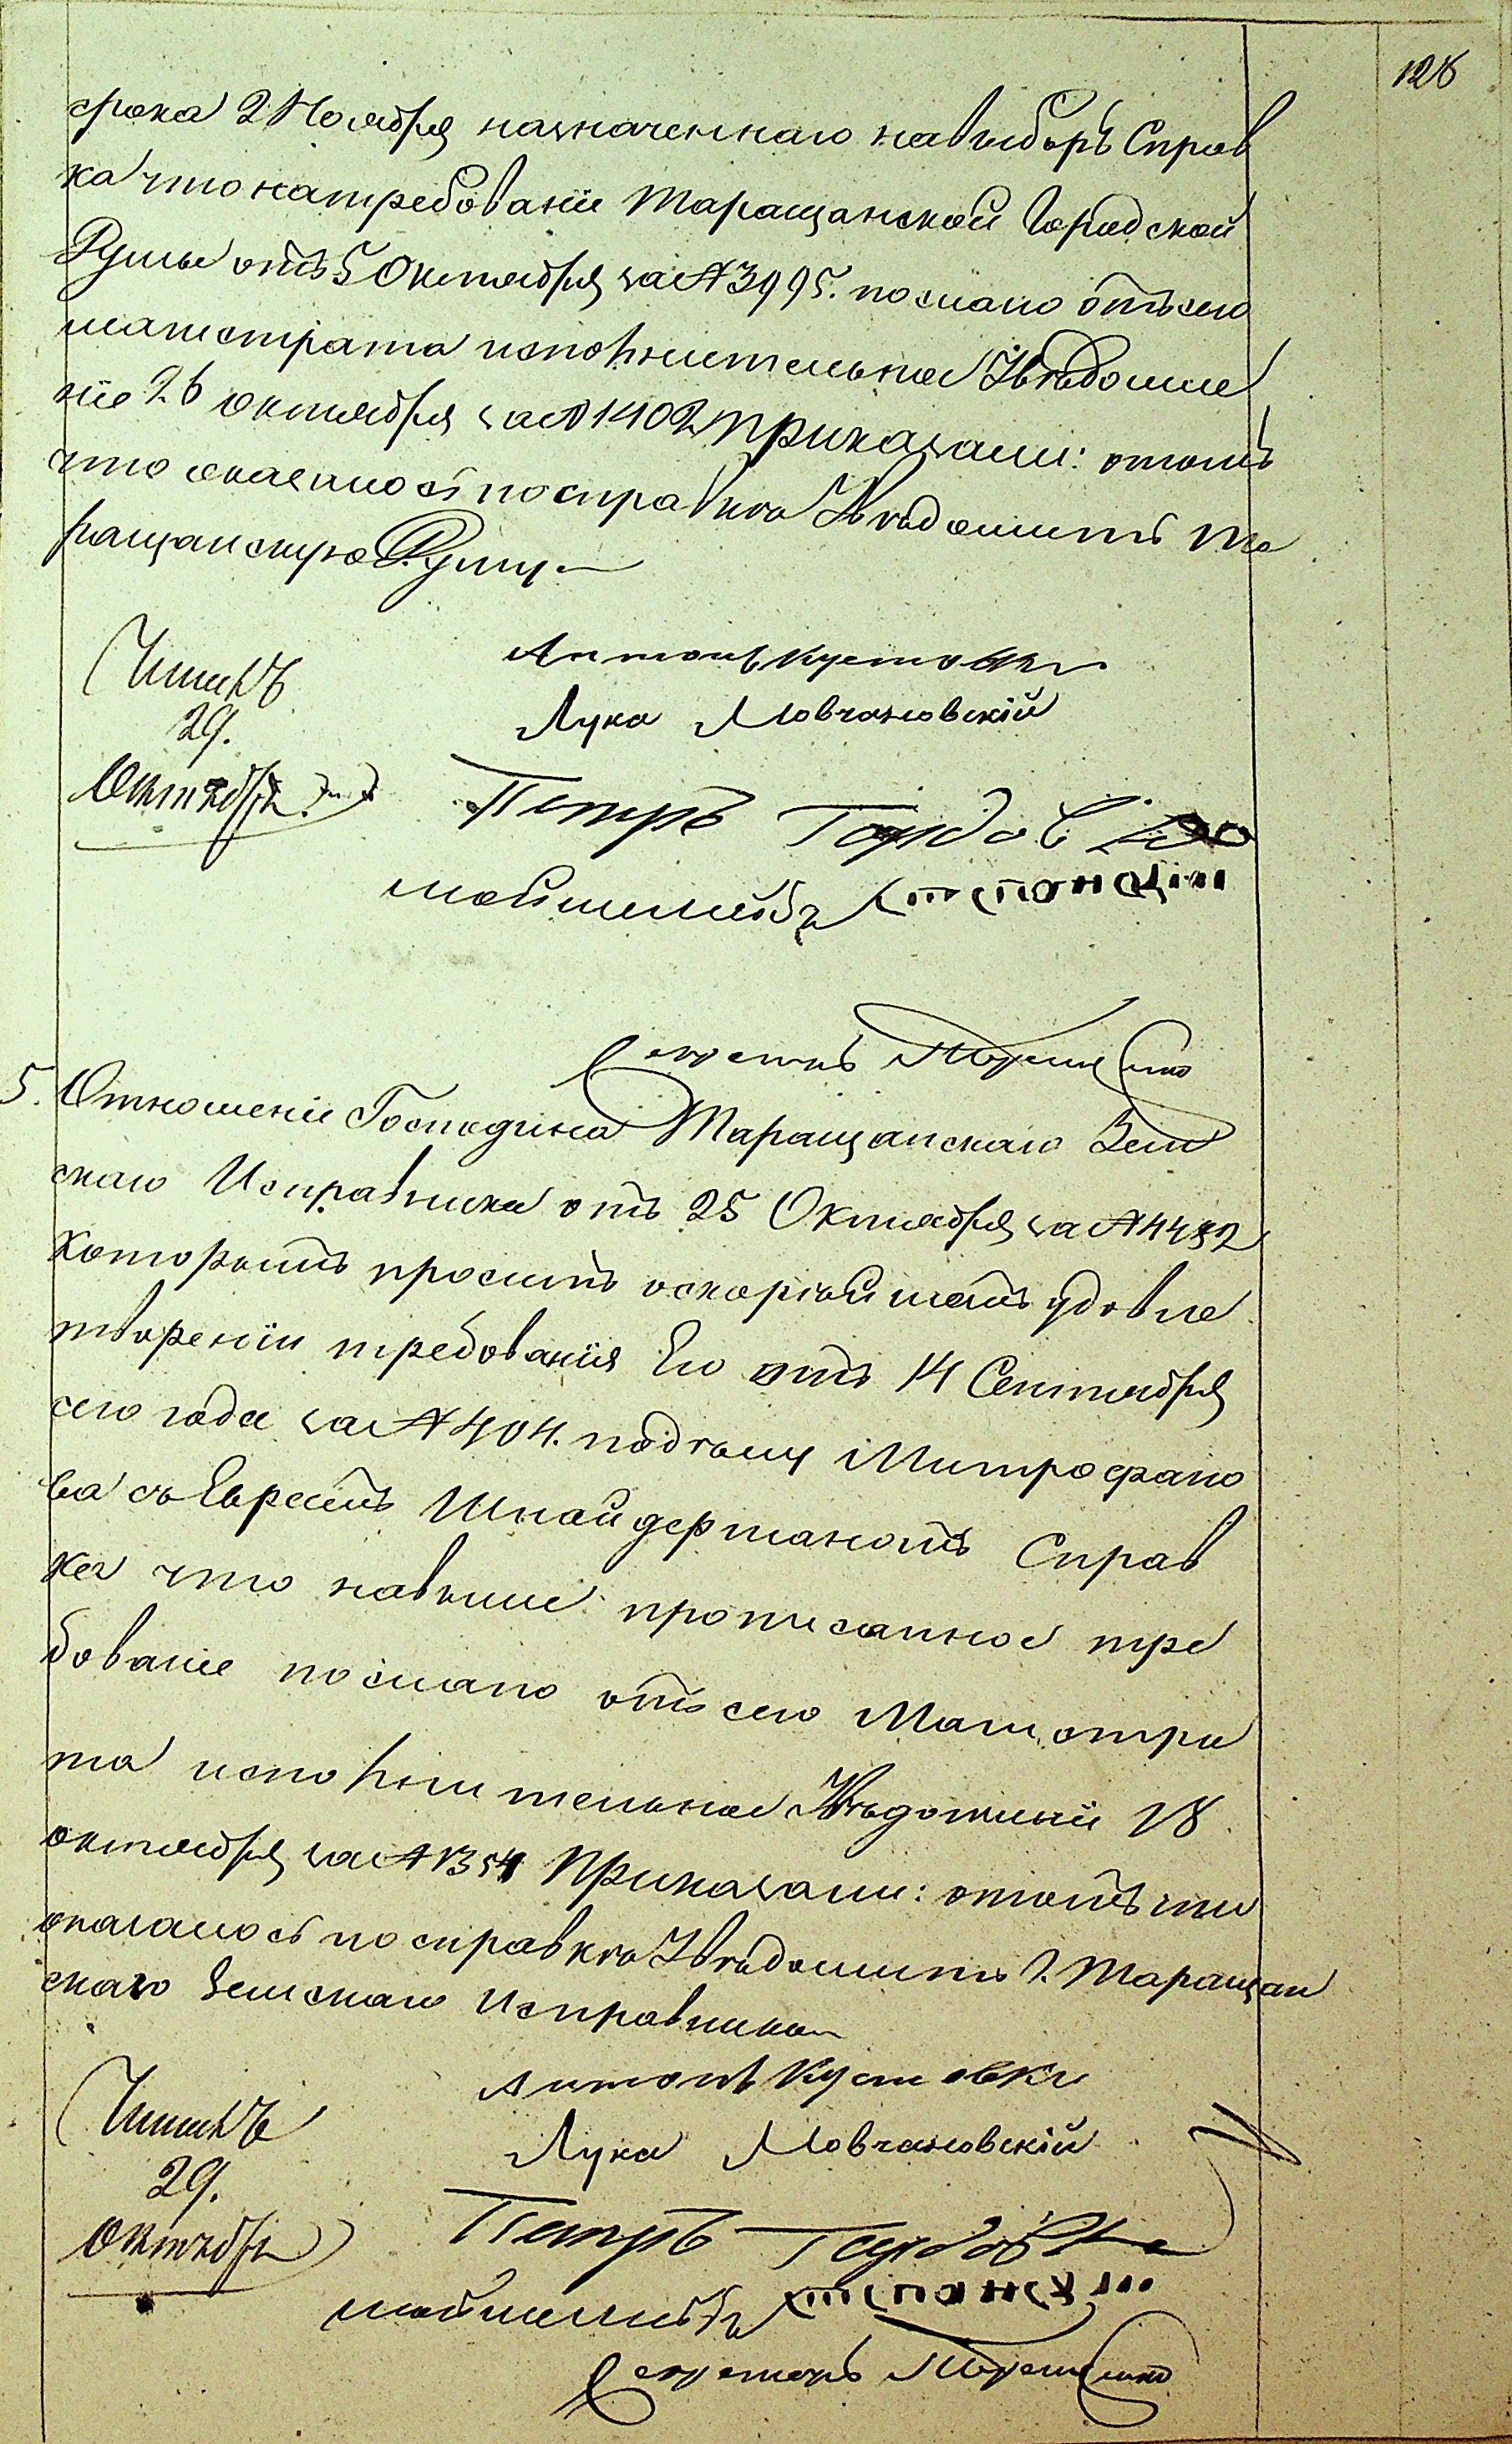 128
срока 2 Ноября назначеннаго на выборъ Справ
ка что на требованіе Таращанской Городской
Думы отъ 5 Октября за № 3995. послано отъ сего
магистрата исполнительное Увѣдомле
ніе 26 октября за № 1402 Приказали: отомъ
что оказалось посправкѣ Увѣдомить Та
ращанскую Думу.
Антонъ
Лука Мовчановскій
29.
Октября
Петръ
Секретарь
5. Отношеніе Господина Таращанскаго Зем
скаго Исправника отъ 25 Октября за № 4432
Которымъ проситъ оскорѣйшемъ удовле
твореніи требованія Его отъ 14 Сентября
сего года за № 404. подѣлу Митрофано
ва съ Евреемъ Шнайдерманомъ Справ
ка что навыше прописанное тре
бованіе послано отъ сего Магистра
та исполнительное Увѣдомленіе 18
октября за № 1354 Приказали: отомъ что
оказалось по справкѣ Увѣдомить Г. Таращан
скаго Земскаго Исправника
Антонъ
Лука Мовчановскій
29.
Октября
Петръ
Секретарь